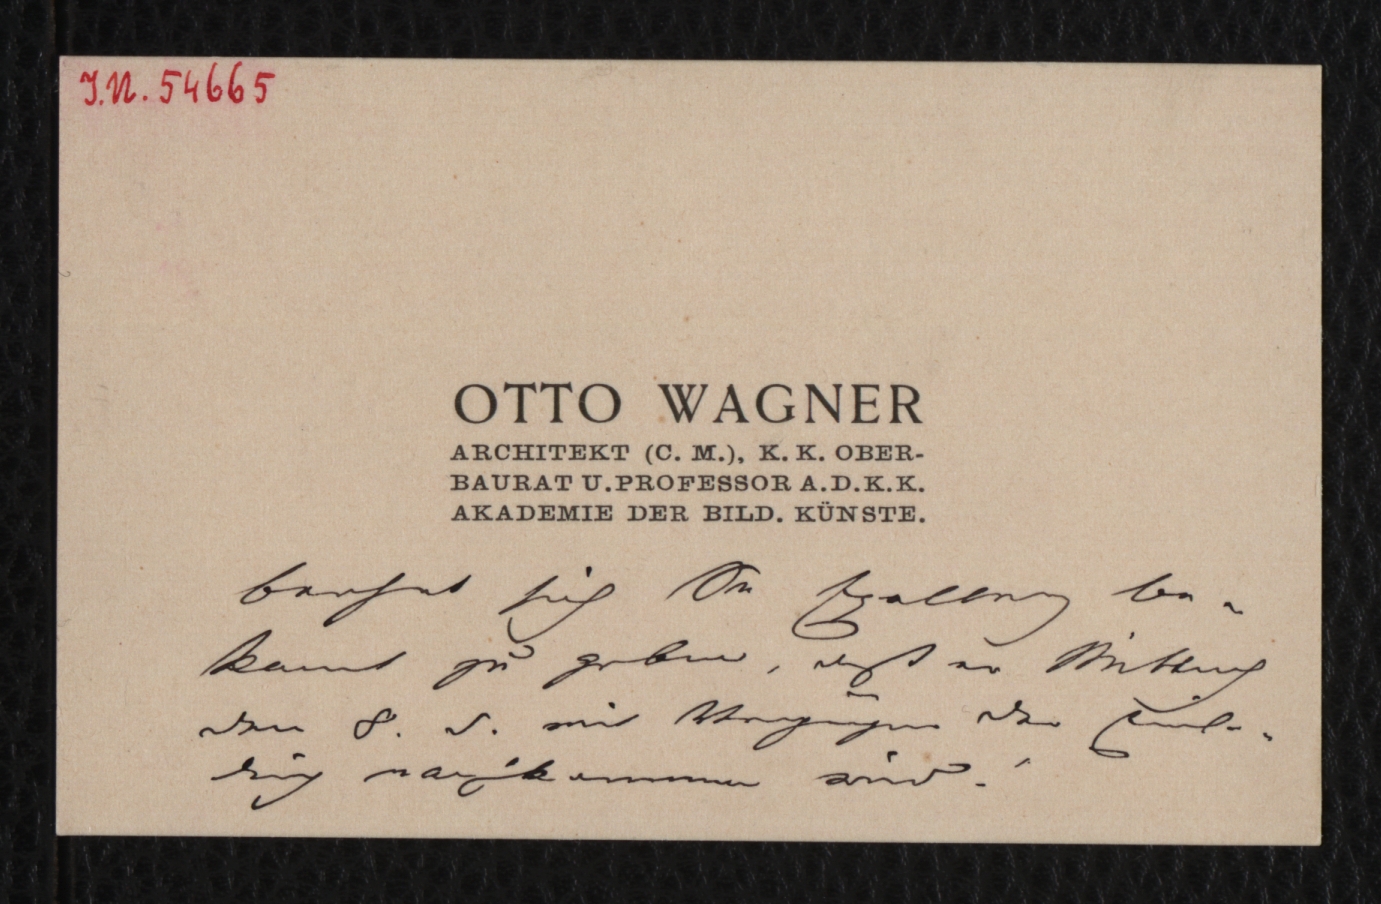 J.N. 54665
OTTO WAGNER
ARCHITEKT (C. M.), K. K. OBER-
BAURAT U. PROFESSOR A. D. K. K.
AKADEMIE DER BILD. KÜNSTE.
beehrt sich Er Exellenz be-
kannt zu geben, daß er Mittwoch
den 8. d. mit Vergnügen der Einla-
dung nachkommen wird.